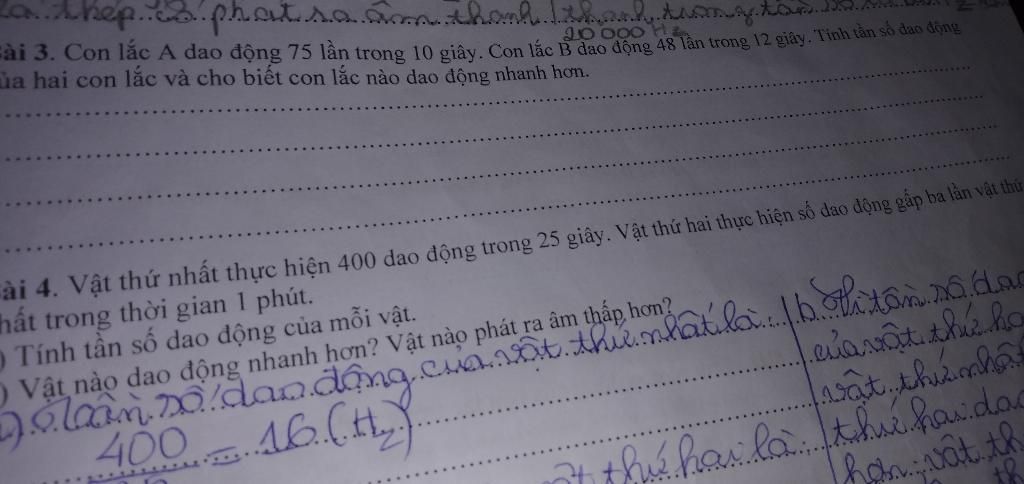 lá thép có phát ra âm thanh
20 000 Hz
ài 3. Con lắc A dao động 75 lần trong 10 giây. Con lắc B dao động 48 lần trong 12 giây. Tính tần số dao động
ủa hai con lắc và cho biết con lắc nào dao động nhanh hơn.
ài 4. Vật thứ nhất thực hiện 400 dao động trong 25 giây. Vật thứ hai thực hiện số dao động gấp ba lần vật thứ
hất trong thời gian 1 phút.
) Tính tần số dao động của mỗi vật.
) Vật nào dao động nhanh hơn? Vật nào phát ra âm thấp hơn?
Tần số dao động của vật thứ nhất là:
400 = 16 (Hz)
thứ hai là:
b. Vì tần số dao
của vật thứ ha
vật thứ nhất
thứ hai dao
hơn vật th